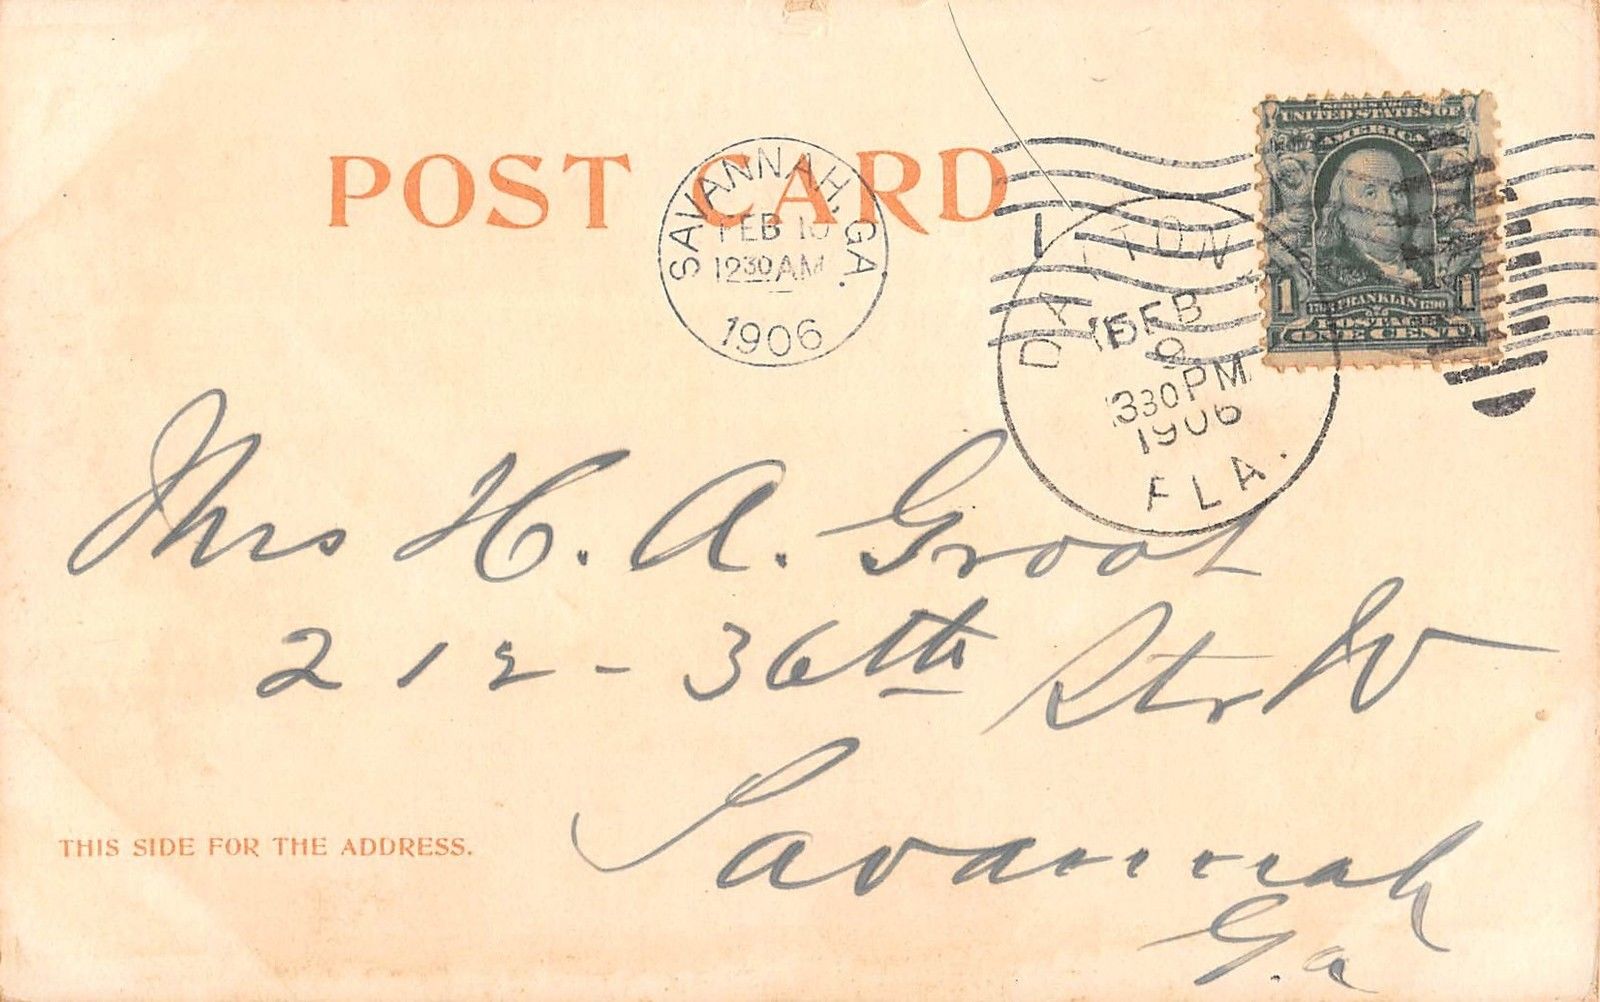 POST CARD
SAVANNAH, GA.
FEB 10
12 30 AM
1906
DAYTONA
FEB
9
3 30 PM
1906
FLA.
UNITED STATES OF
AMERICA
1 FRANKLIN 1
ONE CENT
Mrs H. A. Groot
212 - 36th Str W
Savannah
Ga
THIS SIDE FOR THE ADDRESS.